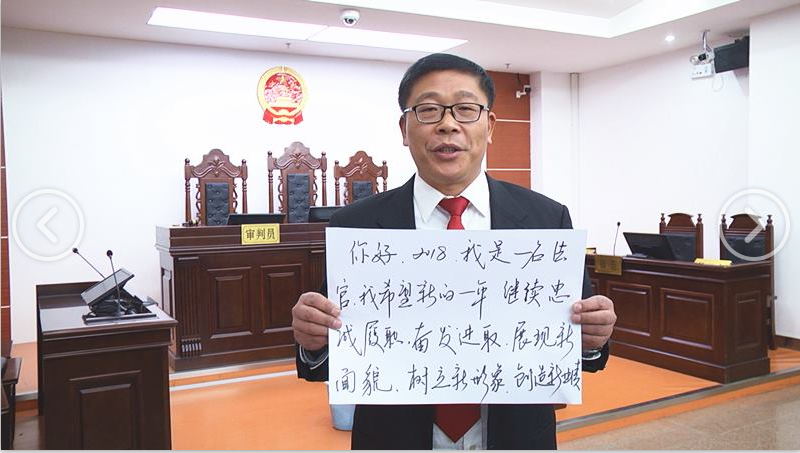 审判员
你好，2018，我是一名法
官，我希望新的一年 继续忠
诚履职、奋发进取、展现新
面貌、树立新形象、创造新业绩